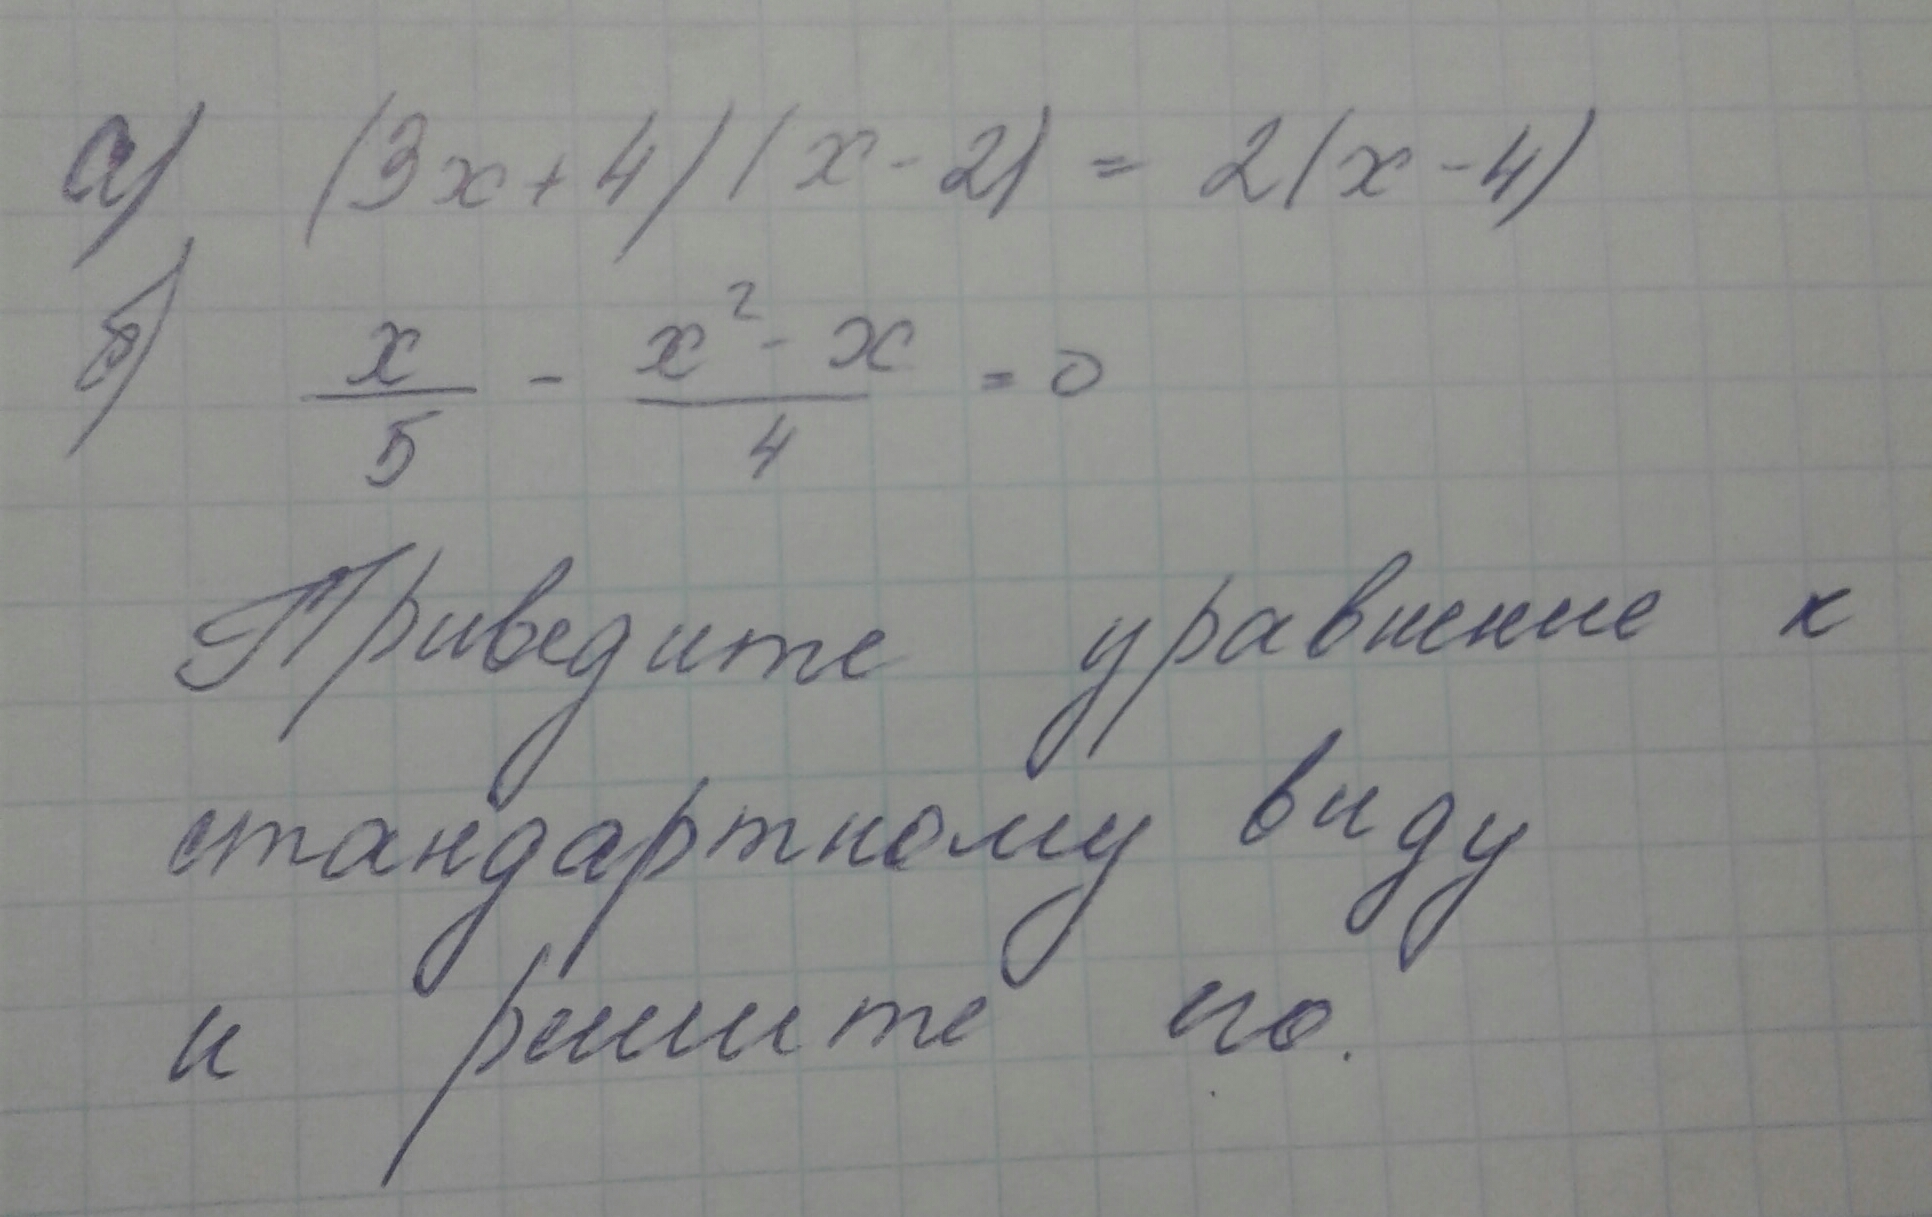 а) (3x+4)(x-2) = 2(x-4)
б) x/5 - x²-x/4 = 0
Приведите уравнение к
стандартному виду
и решите его.